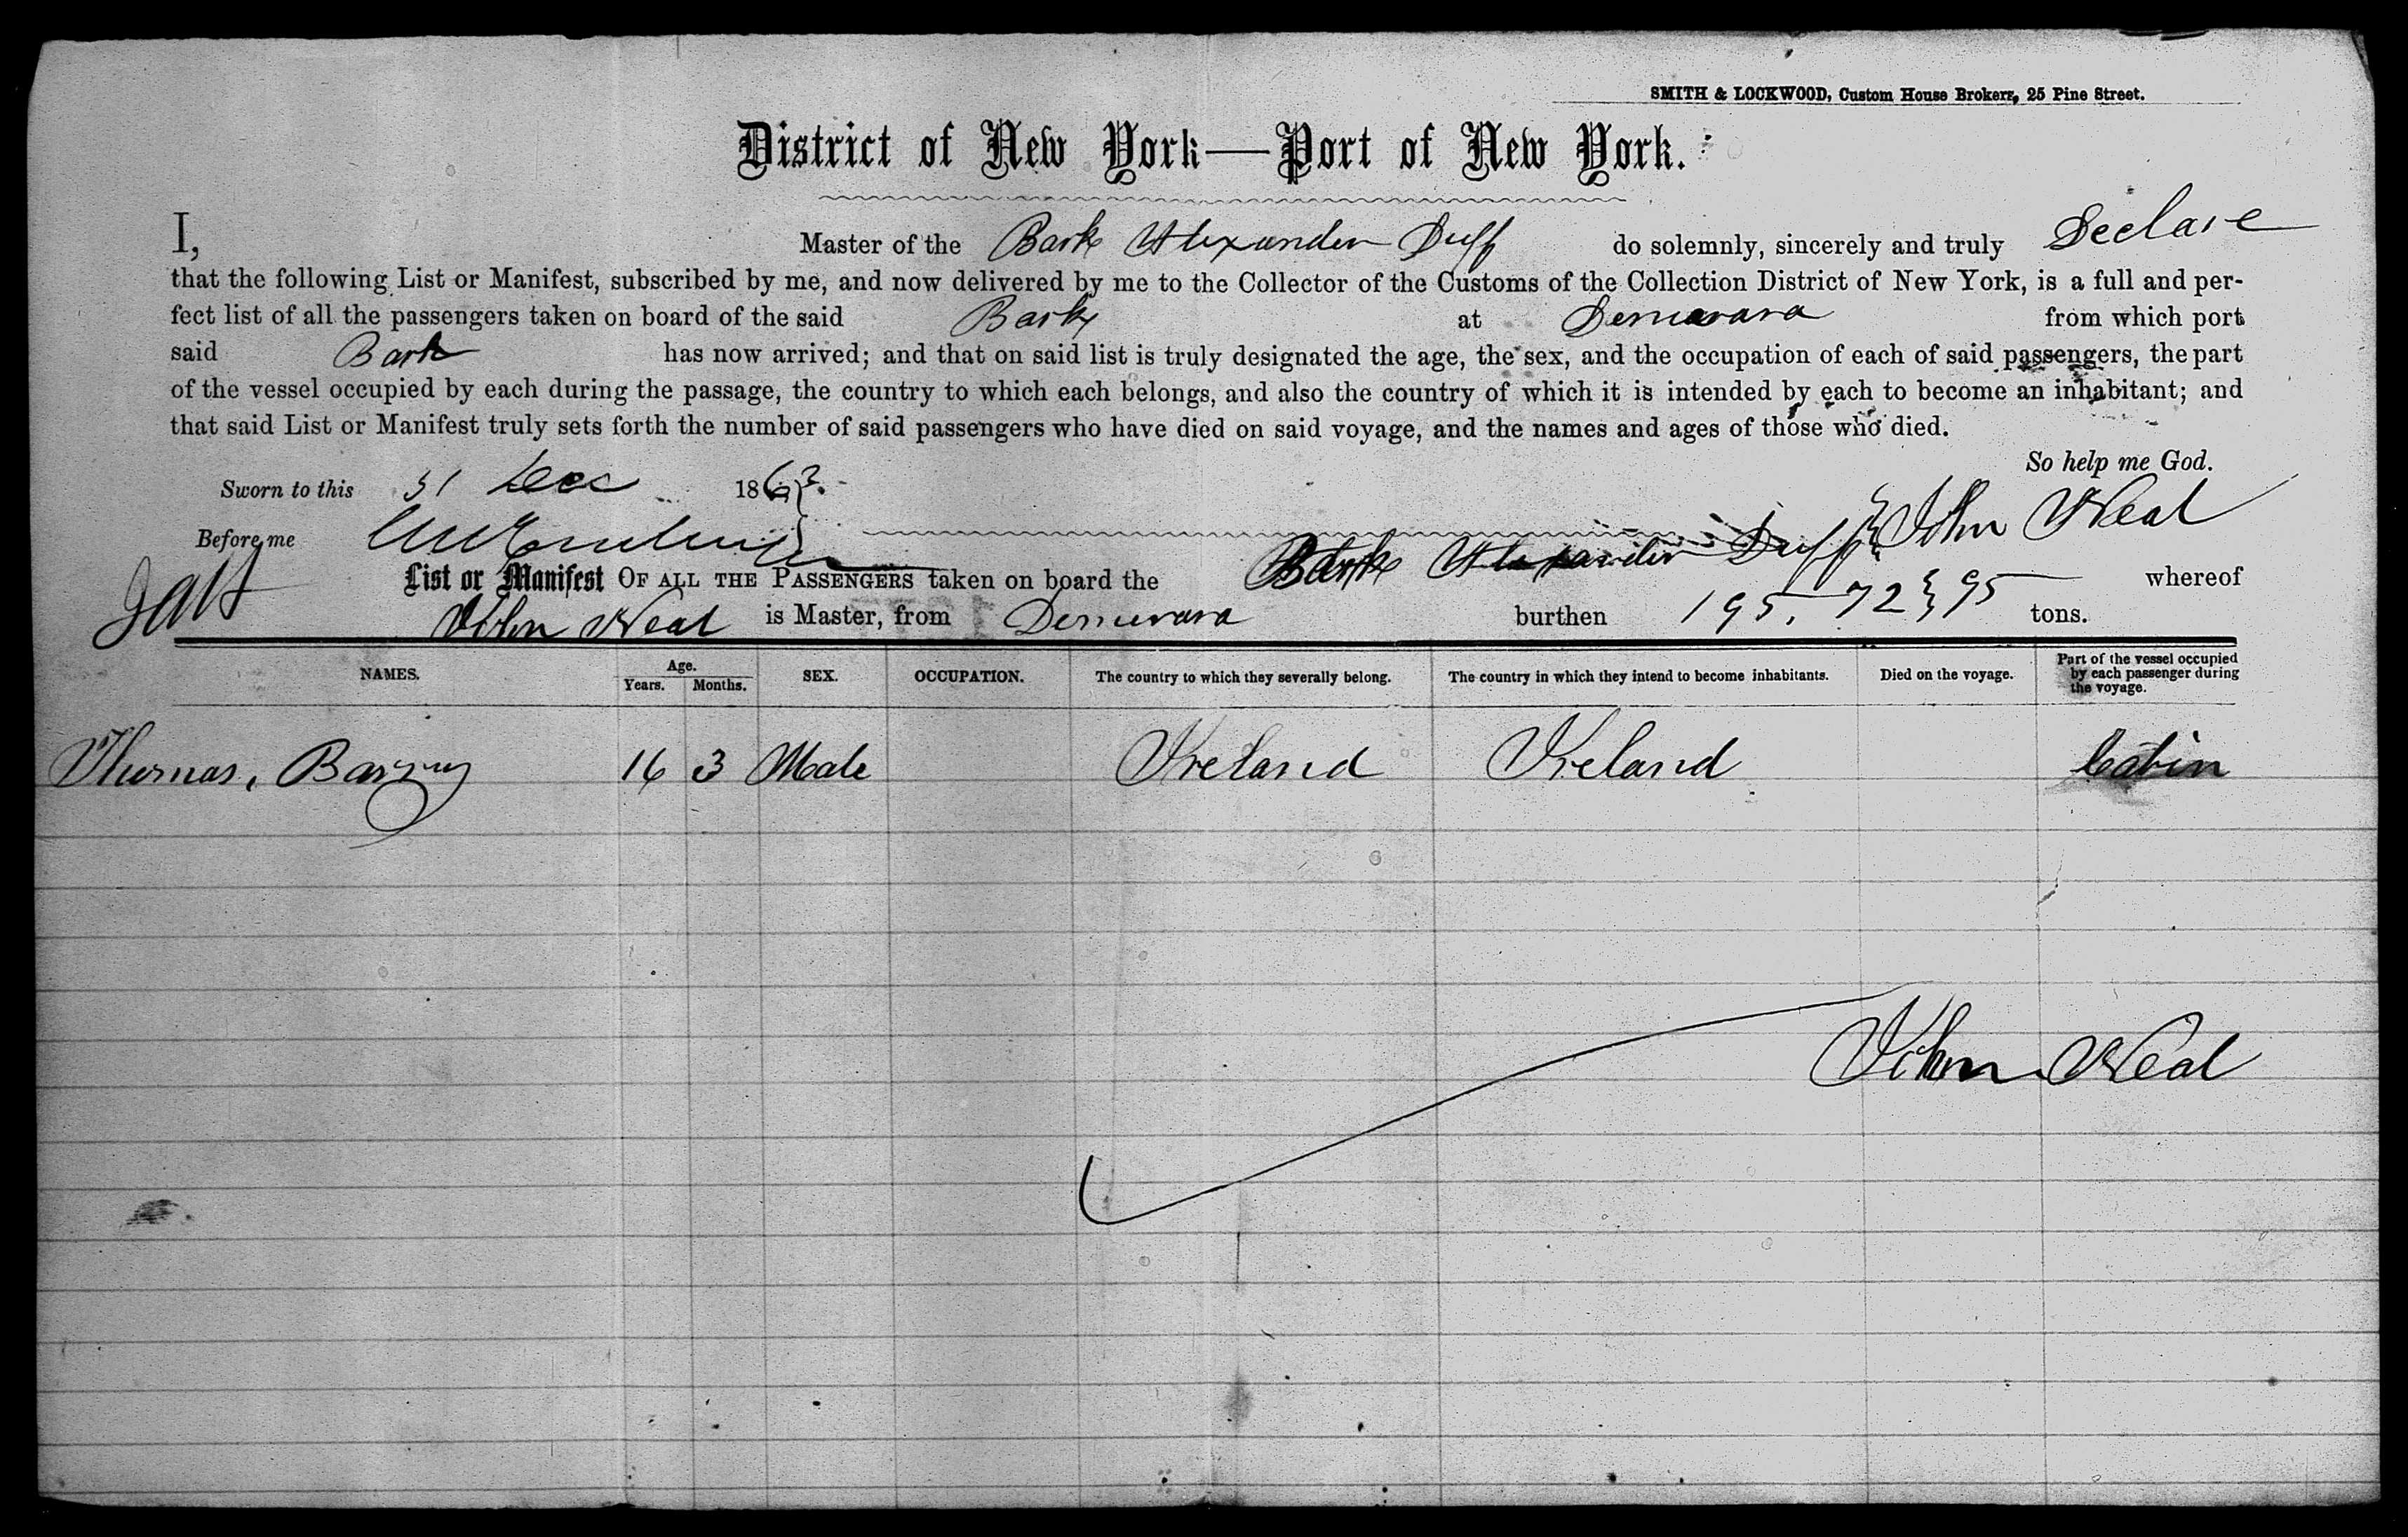 SMITH & LOCKWOOD, Custom House Brokers, 25 Pine Street.
District of New York—Port of New York.
I, Master of the Bark Alexander Duff do solemnly, sincerely and truly Declare
that the following List or Manifest, subscribed by me, and now delivered by me to the Collector of the Customs of the Collection District of New York, is a full and per-
fect list of all the passengers taken on board of the said Bark at Demerara from which port
said Bark has now arrived; and that on said list is truly designated the age, the sex, and the occupation of each of said passengers, the part
of the vessel occupied by each during the passage, the country to which each belongs, and also the country of which it is intended by each to become an inhabitant; and
that said List or Manifest truly sets forth the number of said passengers who have died on said voyage, and the names and ages of those who died.
So help me God.
Sworn to this 31 Dec 1863.
John Neal
Before me
List or Manifest OF ALL THE PASSENGERS taken on board the Bark Alexander Duff whereof
John Neal is Master, from Demerara burthen 195, 72}95 tons.
NAMES. Age. Years. Months. SEX. OCCUPATION. The country to which they severally belong. The country in which they intend to become inhabitants. Died on the voyage. Part of the vessel occupied by each passenger during the voyage.
Thomas, Barry 16 3 Male Ireland Ireland Cabin
John Neal